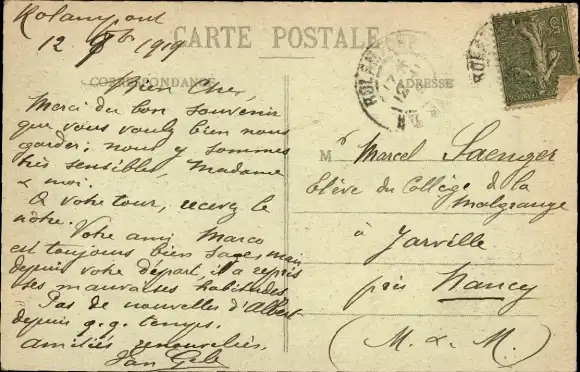 Rolampont
12 8bre 1919
CARTE POSTALE
CORRESPONDANCE
ADRESSE
Mon Cher,
Merci du bon souvenir
que vous voulez bien nous
garder; nous y sommes
très sensibles, Madame
& moi.
A votre tour, recevez le
nôtre.
Votre ami Marco
est toujours bien sage, mais,
depuis votre départ, il a repris
ses mauvaises habitudes.
Pas de nouvelles d'Albert
depuis q.q. temps.
amitiés renouvelées,
Mr Marcel Saenger
Elève du Collège de la
Malgrange
à Jarville
près Nancy
(M. & M.)